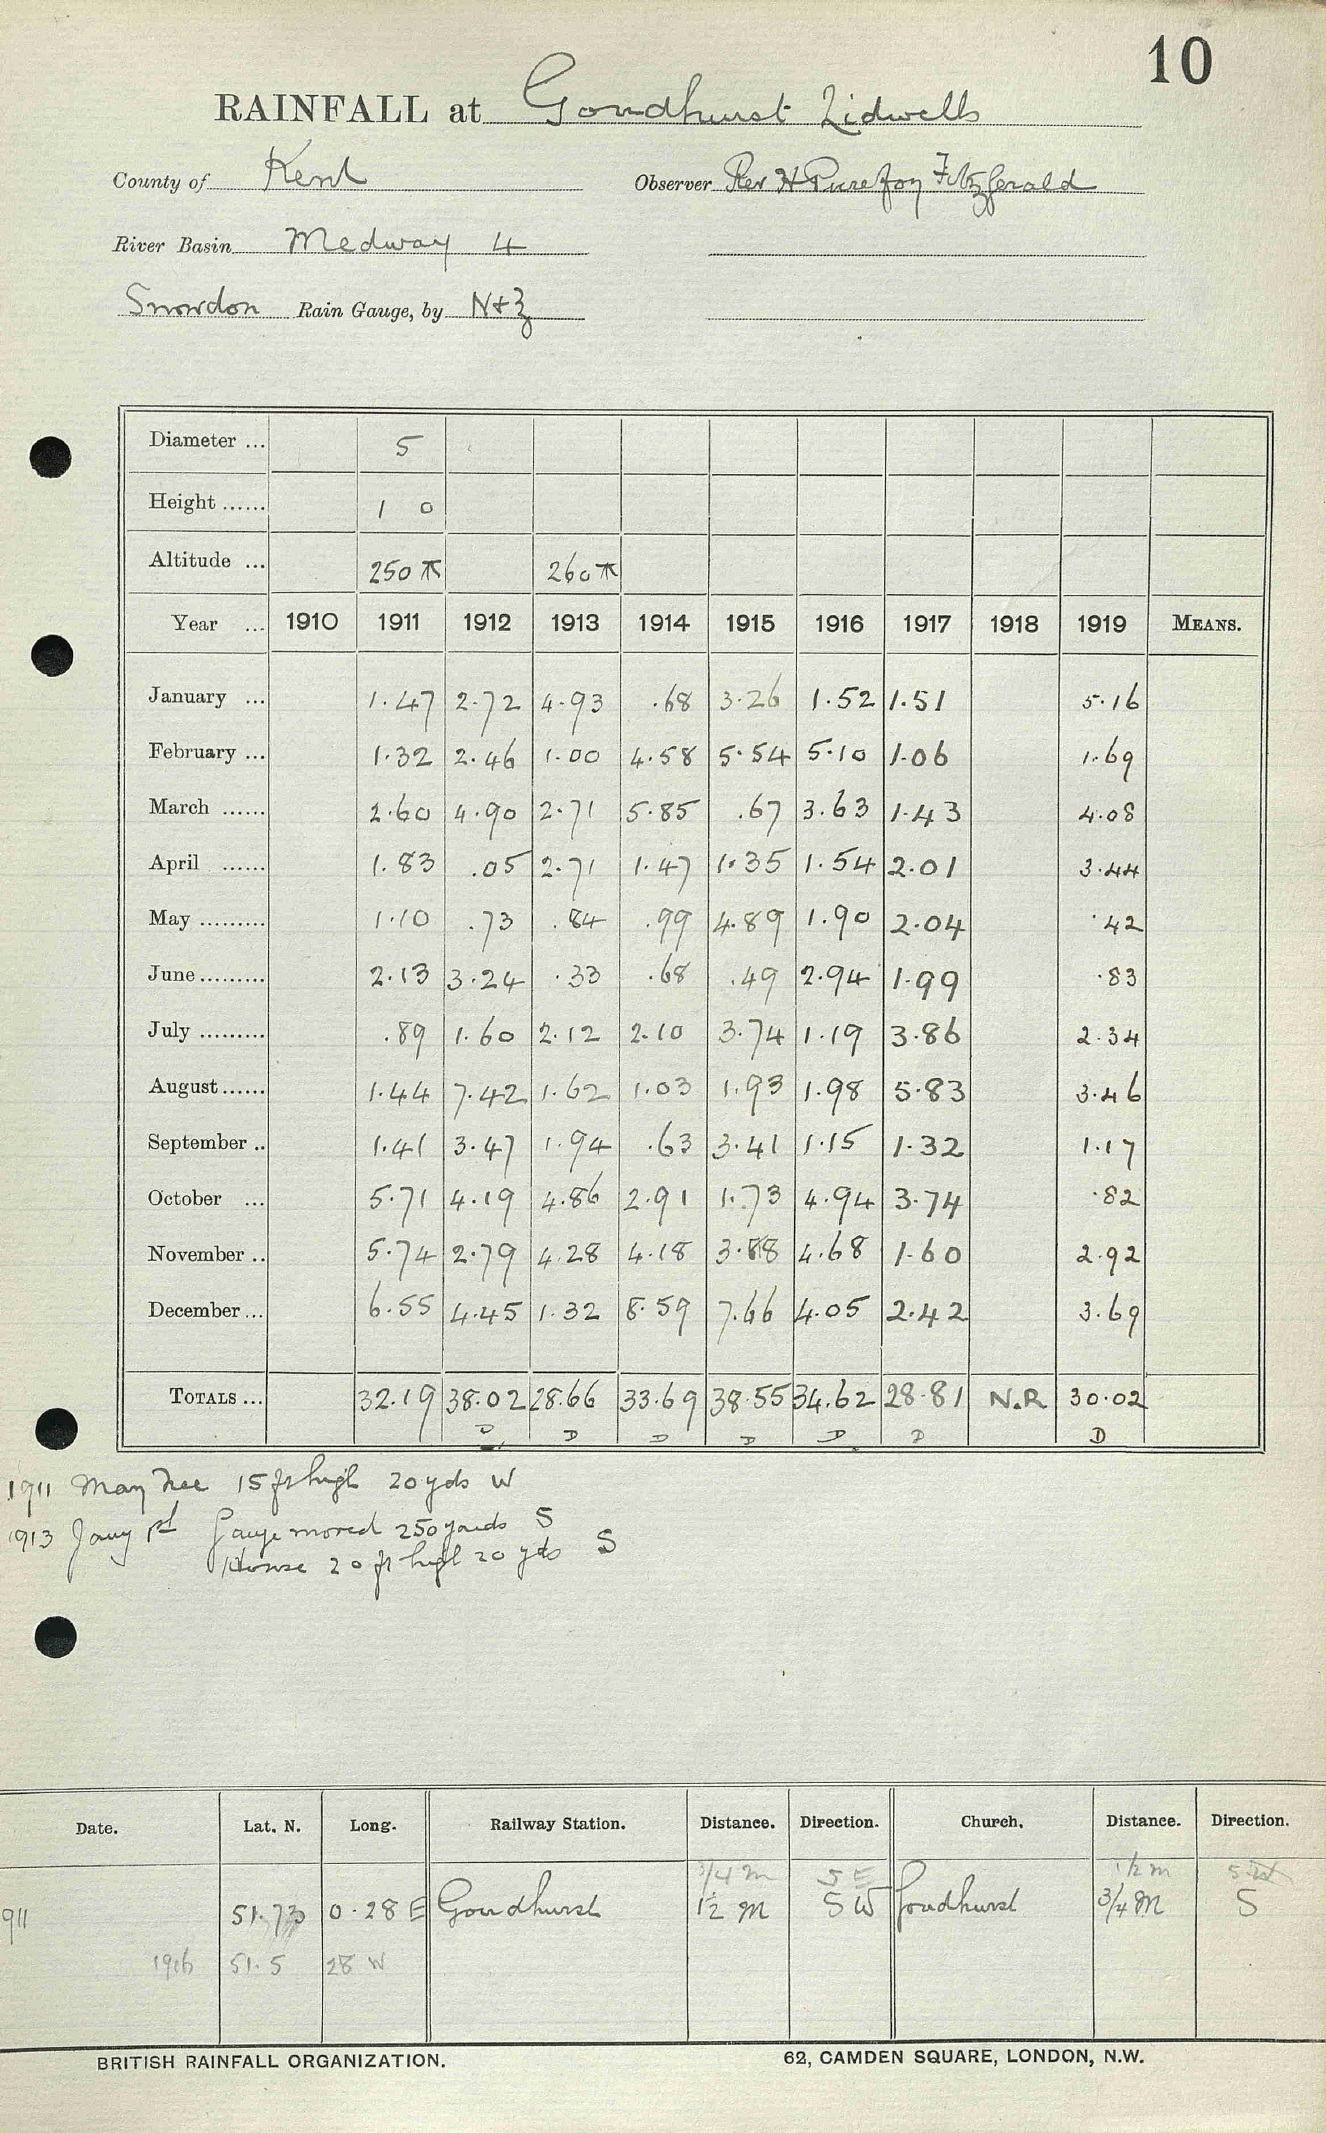 10
RAINFALL at Goudhurst Lidwells
County of Kent Observer Rev H Purefoy Fitzgerald
River Basin Medway 4
Snowdon Rain Gauge, by N+Z
Diameter ... 5
Height ...... 1 0
Altitude ... 250 ⊼ 260 ⊼
Year ... 1910 1911 1912 1913 1914 1915 1916 1917 1918 1919 MEANS.
January ... 1.47 2.72 4.93 .68 3.26 1.52 1.51 5.16
February ... 1.32 2.46 1.00 4.58 5.54 5.10 1.06 1.69
March ...... 2.60 4.90 2.71 5.85 .67 3.63 1.43 4.08
April ...... 1.83 .05 2.71 1.47 1.35 1.54 2.01 3.44
May ......... 1.10 .73 .84 .99 4.89 1.90 2.04 .42
June ......... 2.13 3.24 .33 .68 .49 2.94 1.99 .83
July ......... .89 1.60 2.12 2.10 3.74 1.19 3.86 2.34
August ...... 1.44 7.42 1.62 1.03 1.93 1.98 5.83 3.46
September .. 1.41 3.47 1.94 .63 3.41 1.15 1.32 1.17
October ... 5.71 4.19 4.86 2.91 1.73 4.94 3.74 .82
November .. 5.74 2.79 4.28 4.18 3.88 4.68 1.60 2.92
December ... 6.55 4.45 1.32 8.59 7.66 4.05 2.42 3.69
TOTALS ... 32.19 38.02 28.66 33.69 38.55 34.62 28.81 N.R 30.02
D D D D D D D
1911 May tree 15 ft high 20 yds W
1913 Jany 1st Gauge moved 250 yards S
House 20 ft high 20 yds S
Date. Lat. N. Long. Railway Station. Distance. Direction. Church. Distance. Direction.
3/4 m S E 1 1/2 m SW
911 51.7 0.28 E Goudhurst 1 1/2 M SW Goudhurst 3/4 M S
1916 51.5 28 W
BRITISH RAINFALL ORGANIZATION. 62, CAMDEN SQUARE, LONDON, N.W.